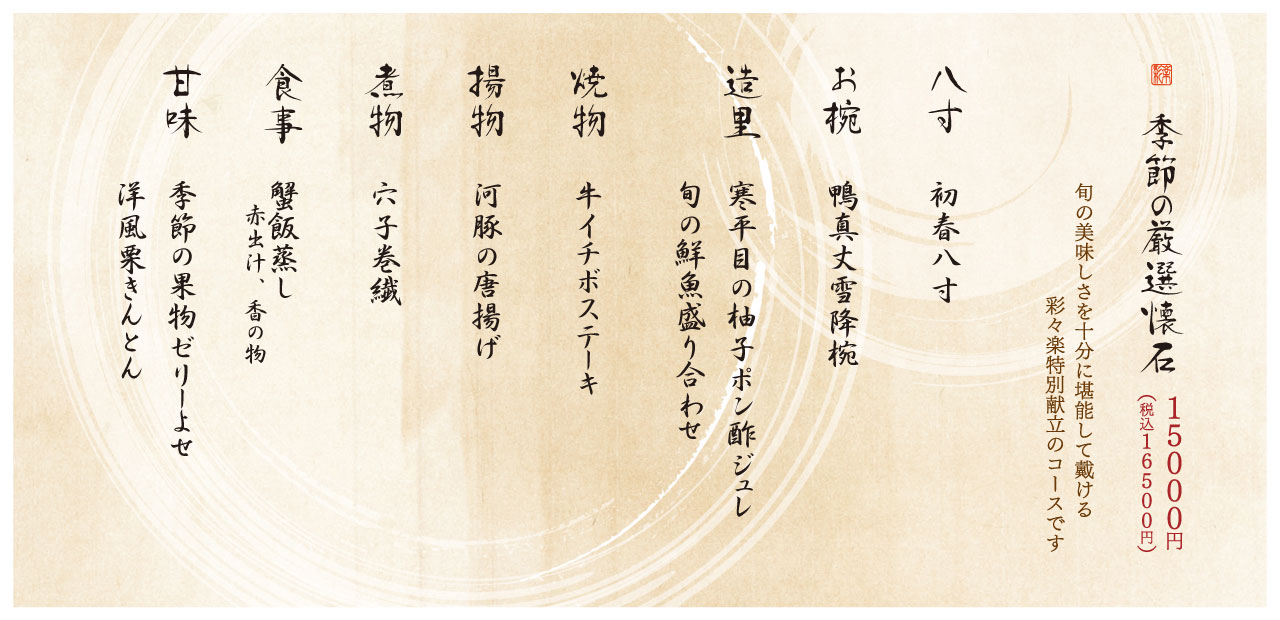 季節の厳選懐石
15000円
(税込16500円)
旬の美味しさを十分に堪能して戴ける
彩々楽特別献立のコースです
八寸
初春八寸
お椀
鴨真丈雪降椀
造里
寒平目の柚子ポン酢ジュレ
旬の鮮魚盛り合わせ
焼物
牛イチボステーキ
揚物
河豚の唐揚げ
煮物
穴子巻繊
食事
蟹飯蒸し
赤出汁、香の物
甘味
季節の果物ゼリーよせ
洋風栗きんとん